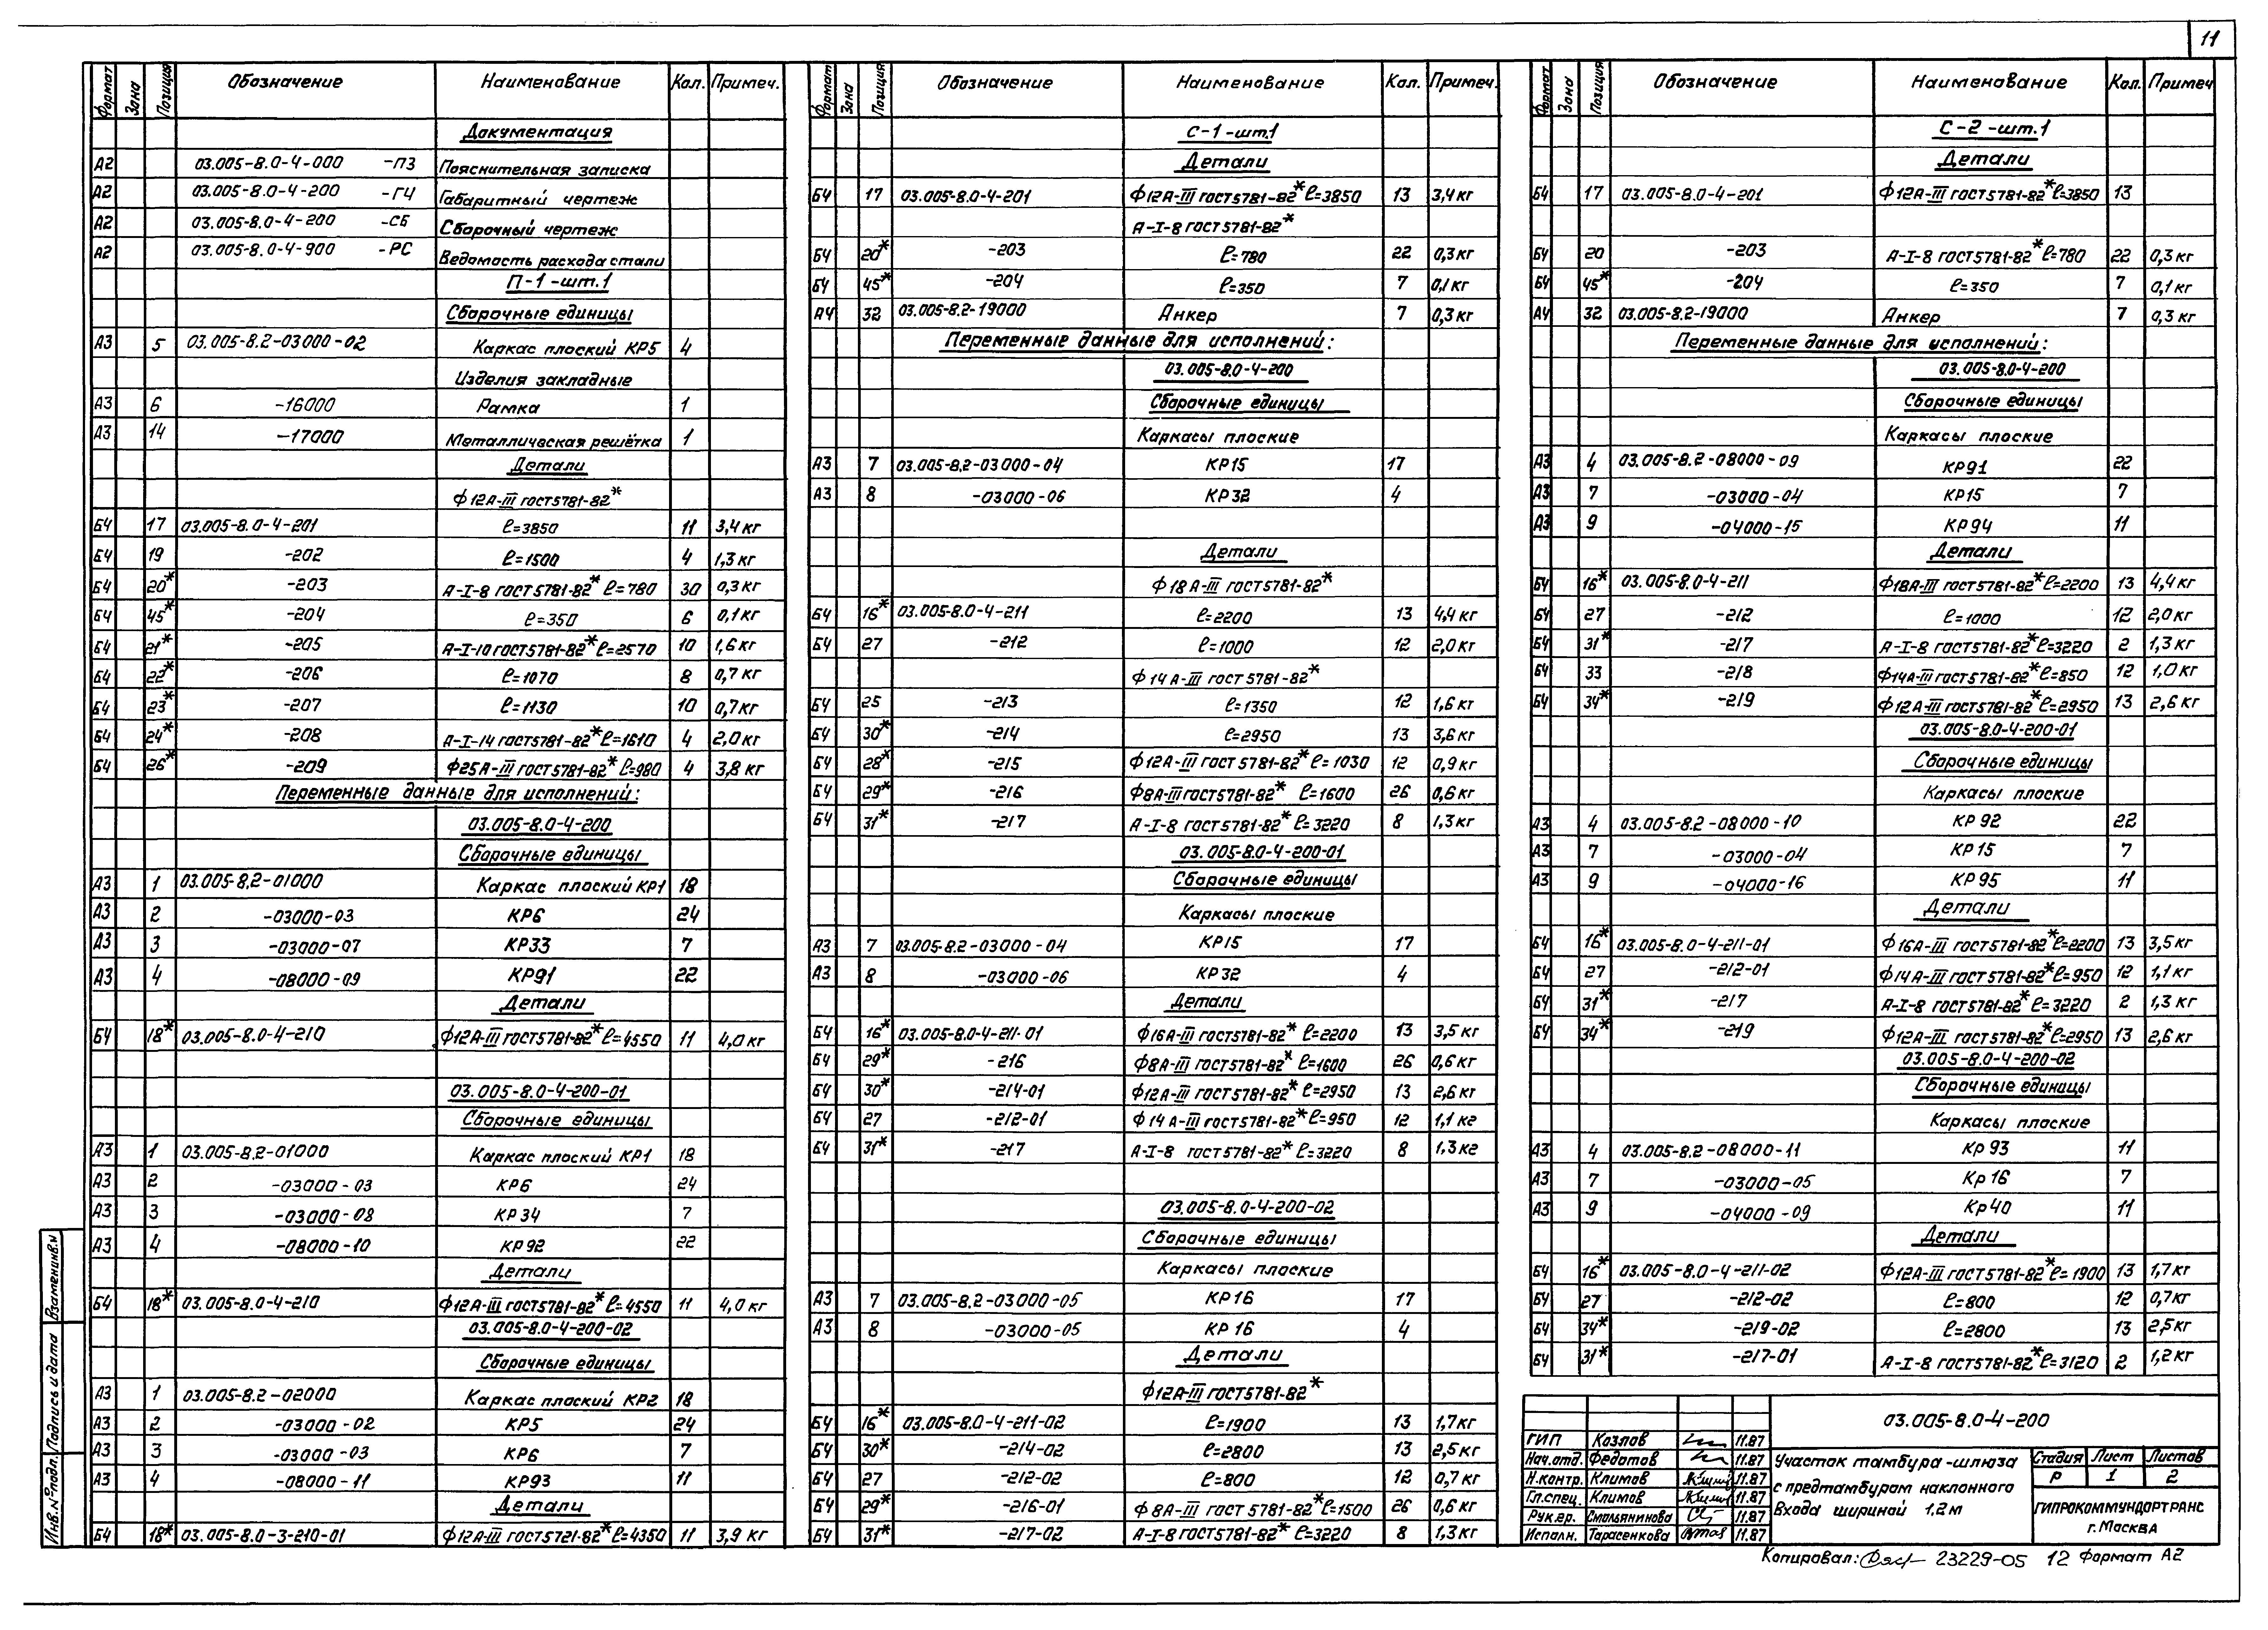 11
Формат Зона Позиция Обозначение Наименование Кол. Примеч.
Документация
А2 03.005-8.0-4-000 -ПЗ Пояснительная записка
А2 03.005-8.0-4-200 -ГЧ Габаритный чертеж
А2 03.005-8.0-4-200 -СБ Сборочный чертеж
А2 03.005-8.0-4-900 -РС Ведомость расхода стали
П-1-шт.1
Сборочные единицы
А3 5 03.005-8.2-03000-02 Каркас плоский КР5 4
Изделия закладные
А3 6 -16000 Рамка 1
А3 14 -17000 Металлическая решётка 1
Детали
Ф12А-III ГОСТ5781-82*
Б4 17 03.005-8.0-4-201 ℓ=3850 11 3,4кг
Б4 19 -202 ℓ=1500 4 1,3кг
Б4 20* -203 А-I-8 ГОСТ5781-82* ℓ=780 30 0,3кг
Б4 45* -204 ℓ=350 6 0,1кг
Б4 21* -205 А-I-10 ГОСТ5781-82* ℓ=2570 10 1,6кг
Б4 22* -206 ℓ=1070 8 0,7кг
Б4 23* -207 ℓ=1130 10 0,7кг
Б4 24* -208 А-I-14 ГОСТ5781-82* ℓ=1610 4 2,0кг
Б4 26* -209 Ф25А-III ГОСТ5781-82* ℓ=980 4 3,8кг
Переменные данные для исполнений:
03.005-8.0-4-200
Сборочные единицы
А3 1 03.005-8.2-01000 Каркас плоский КР1 18
А3 2 -03000-03 КР6 24
А3 3 -03000-07 КР33 7
А3 4 -08000-09 КР91 22
Детали
Б4 18* 03.005-8.0-4-210 Ф12А-III ГОСТ5781-82* ℓ=4550 11 4,0кг
03.005-8.0-4-200-01
Сборочные единицы
А3 1 03.005-8.2-01000 Каркас плоский КР1 18
А3 2 -03000-03 КР6 24
А3 3 -03000-08 КР34 7
А3 4 -08000-10 КР92 22
Детали
Б4 18* 03.005-8.0-4-210 Ф12А-III ГОСТ5781-82* ℓ=4550 11 4,0кг
03.005-8.0-4-200-02
Сборочные единицы
А3 1 03.005-8.2-02000 Каркас плоский КР2 18
А3 2 -03000-02 КР5 24
А3 3 -03000-03 КР6 7
А3 4 -08000-11 КР93 11
Детали
Б4 18* 03.005-8.0-3-210-01 Ф12А-III ГОСТ5721-82* ℓ=4350 11 3,9 кг
Формат Зона Позиция Обозначение Наименование Кол. Примеч.
С-1-шт.1
Детали
Б4 17 03.005-8.0-4-201 Ф12А-III ГОСТ5781-82* ℓ=3850 13 3,4кг
А-I-8 ГОСТ5781-82*
Б4 20* -203 ℓ=780 22 0,3кг
Б4 45* -204 ℓ=350 7 0,1кг
А4 32 03.005-8.2-19000 Анкер 7 0,3кг
Переменные данные для исполнений:
03.005-8.0-4-200
Сборочные единицы
Каркасы плоские
А3 7 03.005-8.2-03000-04 КР15 17
А3 8 -03000-06 КР32 4
Детали
Ф18А-III ГОСТ5781-82*
Б4 16* 03.005-8.0-4-211 ℓ=2200 13 4,4кг
Б4 27 -212 ℓ=1000 12 2,0кг
Ф14А-III ГОСТ 5781-82*
Б4 25 -213 ℓ=1350 12 1,6кг
Б4 30* -214 ℓ=2950 13 3,6кг
Б4 28* -215 Ф12А-III ГОСТ5781-82* ℓ=1030 12 0,9кг
Б4 29* -216 Ф8А-III ГОСТ5781-82* ℓ=1600 26 0,6кг
Б4 31* -217 А-I-8 ГОСТ5781-82* ℓ=3220 8 1,3кг
03.005-8.0-4-200-01
Сборочные единицы
Каркасы плоские
А3 7 03.005-8.2-03000-04 КР15 17
А3 8 -03000-06 КР32 4
Детали
Б4 16* 03.005-8.0-4-211-01 Ф16А-III ГОСТ5781-82* ℓ=2200 13 3,5кг
Б4 29* -216 Ф8А-III ГОСТ5781-82* ℓ=1600 26 0,6кг
Б4 30* -214-01 Ф12А-III ГОСТ5781-82* ℓ=2950 13 2,6кг
Б4 27 -212-01 Ф14А-III ГОСТ5781-82* ℓ=950 12 1,1кг
Б4 31* -217 А-I-8 ГОСТ5781-82* ℓ=3220 8 1,3кг
03.005-8.0-4-200-02
Сборочные единицы
Каркасы плоские
А3 7 03.005-8.2-03000-05 КР16 17
А3 8 -03000-05 КР 16 4
Детали
Ф12А-III ГОСТ5781-82*
Б4 16* 03.005-8.0-4-211-02 ℓ=1900 13 1,7кг
Б4 30* -214-02 ℓ=2800 13 2,5кг
Б4 27 -212-02 ℓ=800 12 0,7кг
Б4 29* -216-01 Ф8А-III ГОСТ 5781-82* ℓ=1500 26 0,6кг
Б4 31* -217-02 А-I-8 ГОСТ5781-82* ℓ=3220 8 1,3кг
Формат Зона Позиция Обозначение Наименование Кол. Примеч
С-2-шт.1
Детали
Б4 17 03.005-8.0-4-201 Ф12А-III ГОСТ5781-82* ℓ=3850 13
Б4 20 -203 А-I-8 ГОСТ5781-82* ℓ=780 22 0,3кг
Б4 45* -204 ℓ=350 7 0,1кг
А4 32 03.005-8.2-19000 Анкер 7 0,3кг
Переменные данные для исполнений:
03.005-8.0-4-200
Сборочные единицы
Каркасы плоские
А3 4 03.005-8.2-08000-09 КР91 22
А3 7 -03000-04 КР15 7
А3 9 -04000-15 КР94 11
Детали
Б4 16* 03.005-8.0-4-211 Ф18А-III ГОСТ5781-82* ℓ=2200 13 4,4кг
Б4 27 -212 ℓ=1000 12 2,0кг
Б4 31* -217 А-I-8 ГОСТ5781-82* ℓ=3220 2 1,3кг
Б4 33 -218 Ф14А-III ГОСТ5781-82* ℓ=850 12 1,0кг
Б4 34* -219 Ф12А-III ГОСТ5781-82* ℓ=2950 13 2,6кг
03.005-8.0-4-200-01
Сборочные единицы
Каркасы плоские
А3 4 03.005-8.2-08000-10 КР 92 22
А3 7 -03000-04 КР15 7
А3 9 -04000-16 КР95 11
Детали
Б4 16* 03.005-8.0-4-211-01 Ф16А-III ГОСТ5781-82* ℓ=2200 13 3,5кг
Б4 27 -212-01 Ф14А-III ГОСТ5781-82* ℓ=950 12 1,1кг
Б4 31* -217 А-I-8 ГОСТ5781-82* ℓ=3220 2 1,3кг
Б4 34* -219 Ф12А-III ГОСТ5781-82* ℓ=2950 13 2,6кг
03.005-8.0-4-200-02
Сборочные единицы
Каркасы плоские
А3 4 03.005-8.2-08000-11 Кр 93 11
А3 7 -03000-05 Кр 16 7
А3 9 -04000-09 Кр40 11
Детали
Б4 16* 03.005-8.0-4-211-02 Ф12А-III ГОСТ5781-82* ℓ=1900 13 1,7кг
Б4 27 -212-02 ℓ=800 12 0,7кг
Б4 34* -219-02 ℓ=2800 13 2,5кг
Б4 31* -217-01 А-I-8 ГОСТ5781-82* ℓ=3120 2 1,2кг
03.005-8.0-4-200
ГИП Козлов 11.87
Нач.отд. Федотов 11.87
Н.контр. Климов 11.87
Гл.спец. Климов 11.87
Рук.гр. Смольянинова 11.87
Исполн. Тарасенкова 11.87
Участок тамбура-шлюза
с предтамбуром наклонного
Входа шириной 1,2м
Стадия Лист Листов
Р 1 2
ГИПРОКОММУНДОРТРАНС
г.Москва
Взамен инв.н
Подпись и дата
Инв.№ подл.
Копировал: 23229-05 12 Формат А2